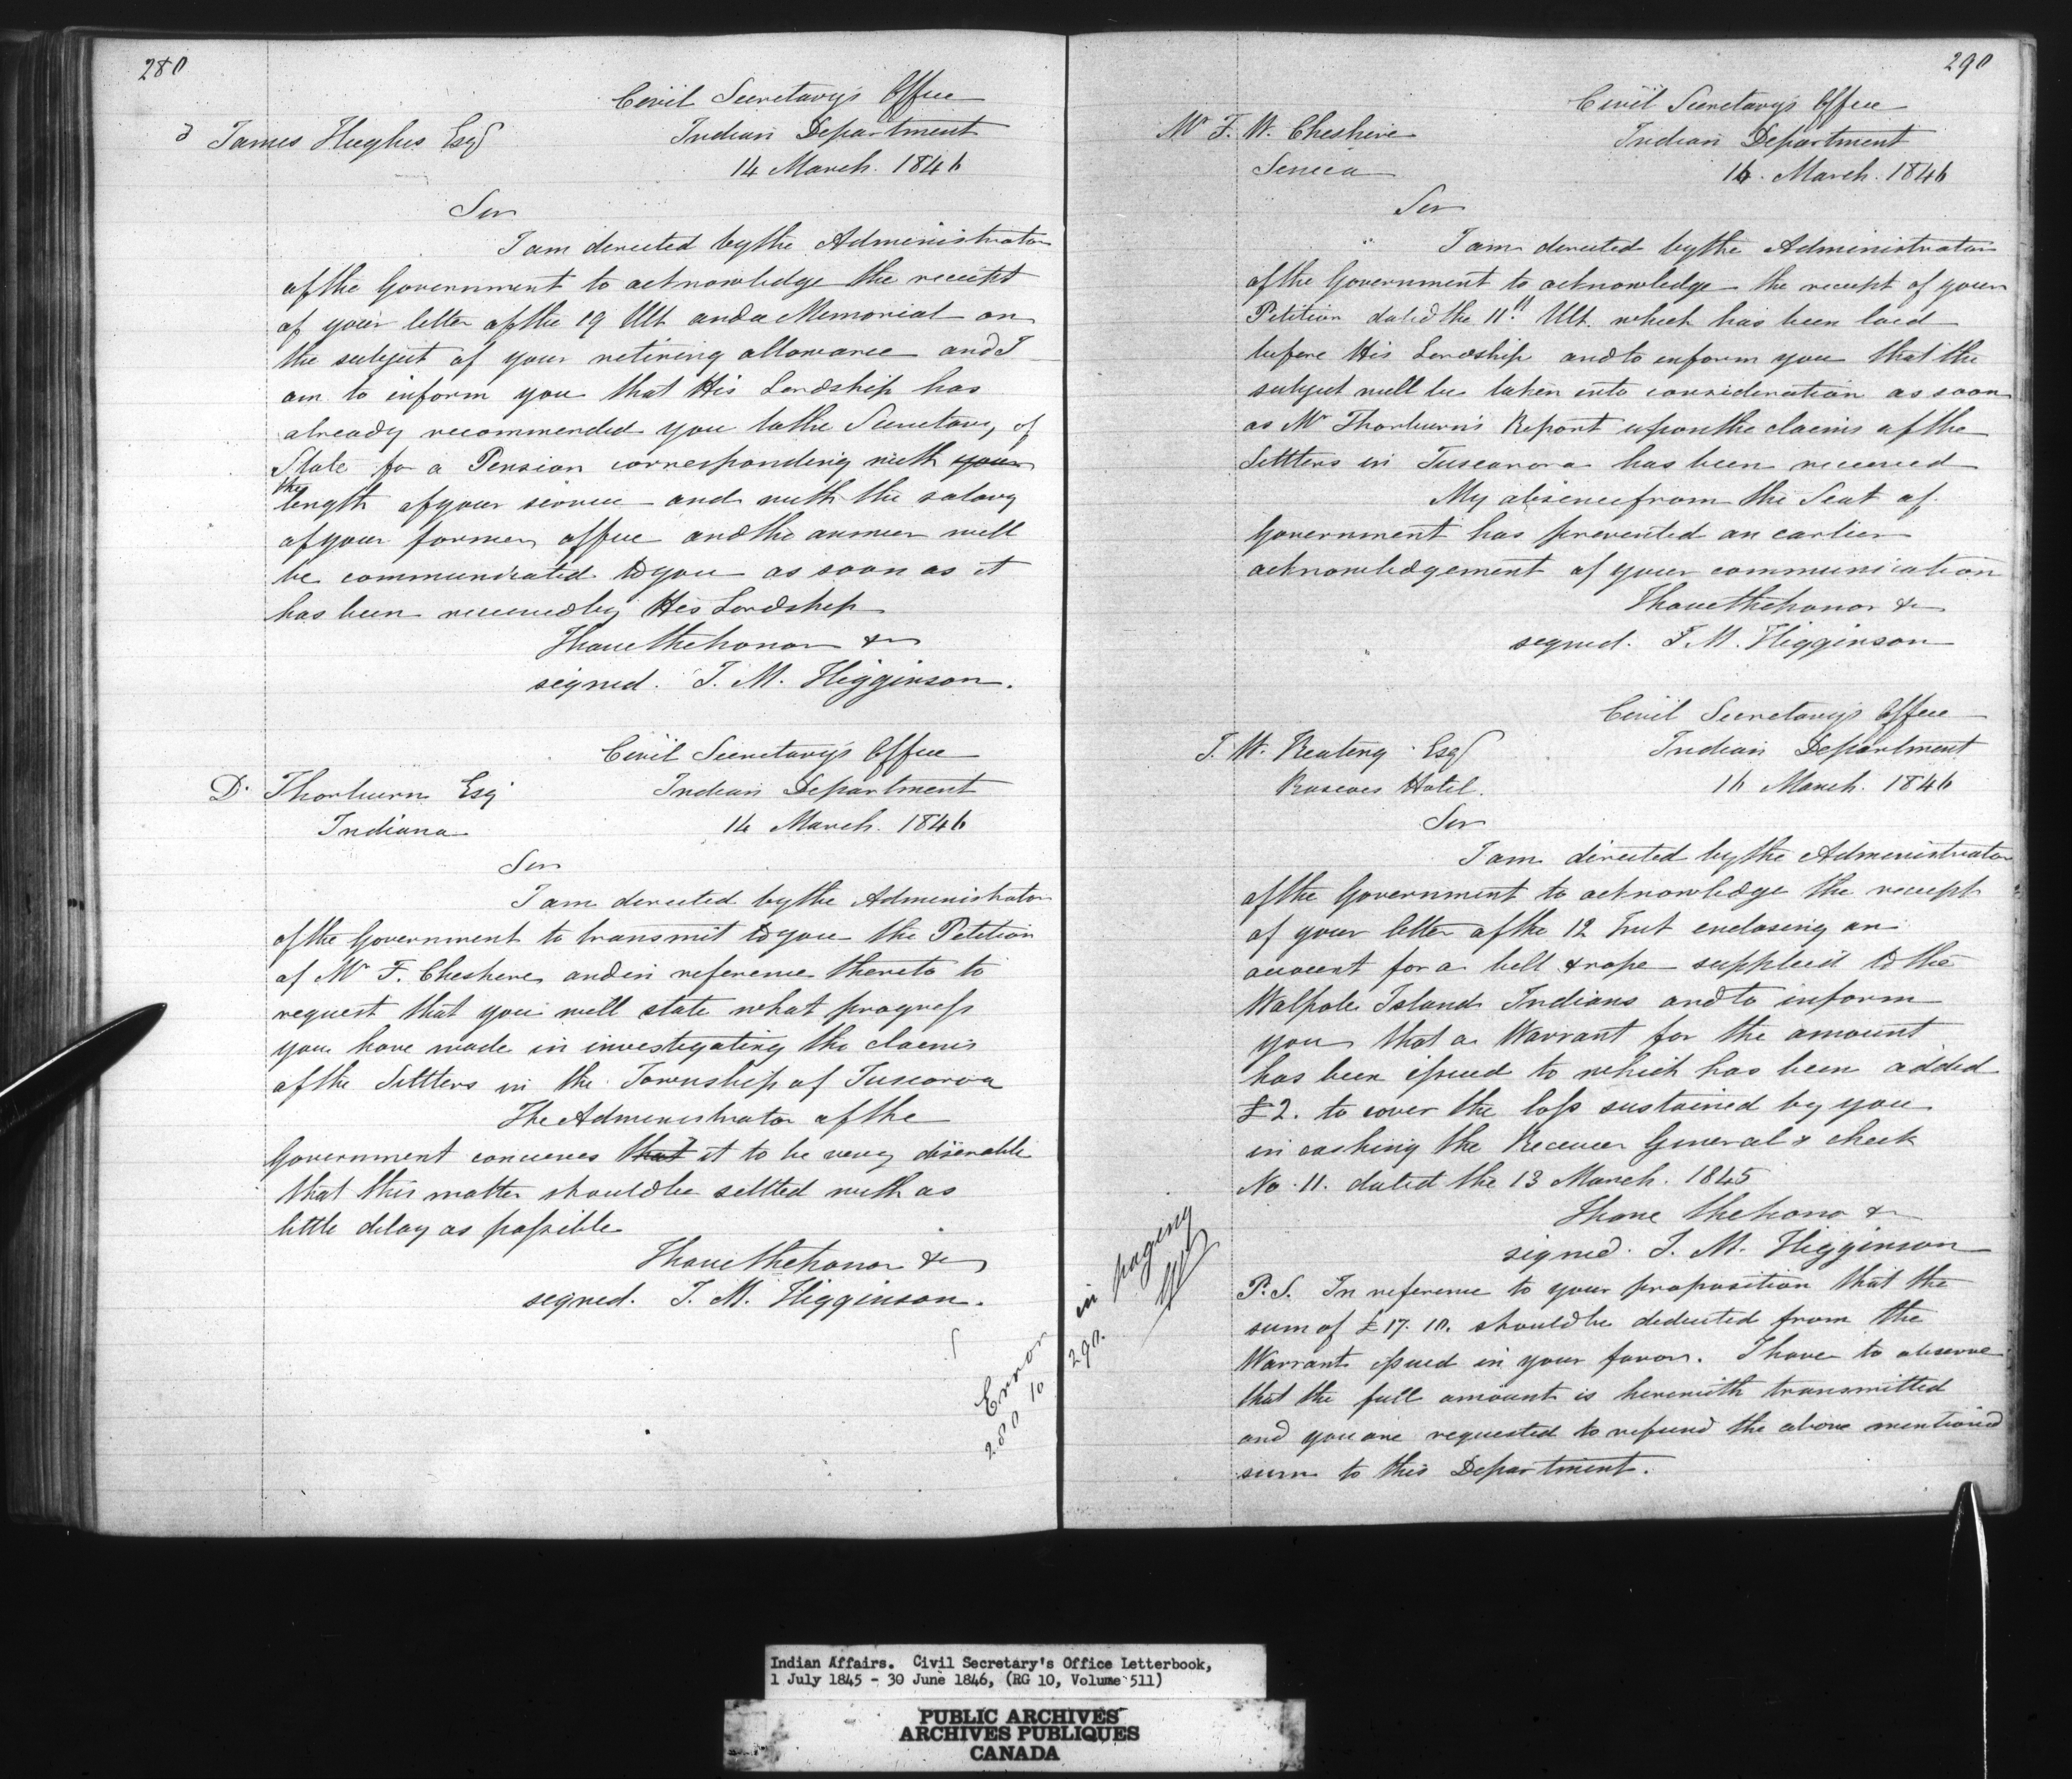 280
Civil Secretary's Office
James Hughes Esq
Indian Department
14 March. 1846
Sir
I am directed by the Administrator
of the Government to acknowledge the receipt
of your letter of the 19 Ult and a Memorial on
the subject of your retiring allowance and I
am to inform you that His Lordship has
already recommended you to the Secretary of
State for a Pension corresponding with your
the
length of your service and with the salary
of your former office and the answer will
be communicated to you as soon as it
has been received by His Lordship
I have the honor &c
signed. J. M. Higginson.
Civil Secretary's Office
D. Thorburn Esq
Indian Department
Indiana
14 March. 1846
Sir
I am directed by the Administrator
of the Government to transmit to you the Petition
of Mr F. Cheshire and in reference thereto to
request that you will state what progress
you have made in investigating the claims
of the Settlers in the Township of Tuscarora
The Administrator of the
Government conceives that it to be very desirable
that this matter should be settled with as
little delay as possible
I have the honor &c
signed. J. M. Higginson.
Error in paging
280 to 290.
290
Civil Secretary's Office
Mr F. W. Cheshire
Indian Department
Seneca
16. March. 1846
Sir
I am directed by the Administrator
of the Government to acknowledge the receipt of your
Petition dated the 11th Ult. which has been laid
before His Lordship and to inform you that the
subject will be taken into consideration as soon
as Mr Thorburn's Report upon the claims of the
Settlers in Tuscarora has been received
My absence from the Seat of
Government has prevented an earlier
acknowledgement of your communication
I have the honor &c
signed. J. M. Higginson
Civil Secretary's Office
J. W. Keating Esq
Indian Department
Hotel.
16 March. 1846
Sir
I am directed by the Administrator
of the Government to acknowledge the receipt
of your letter of the 12 Inst enclosing an
account for a bell & rope supplied to the
Walpole Island Indians and to inform
you that a Warrant for the amount
has been issued to which has been added
£2. to cover the loss sustained by you
in cashing the Receiver General's check
No. 11. dated the 13 March. 1845
I have the honor &c
signed. J. M. Higginson
P.S. In reference to your proposition that the
sum of £17. 10. should be deducted from the
Warrant issued in your favor. I have to observe
that the full amount is herewith transmitted
and you are requested to refund the above mentioned
sum to this Department.
Indian Affairs. Civil Secretary's Office Letterbook,
1 July 1845 - 30 June 1846, (RG 10, Volume 511)
PUBLIC ARCHIVES
ARCHIVES PUBLIQUES
CANADA